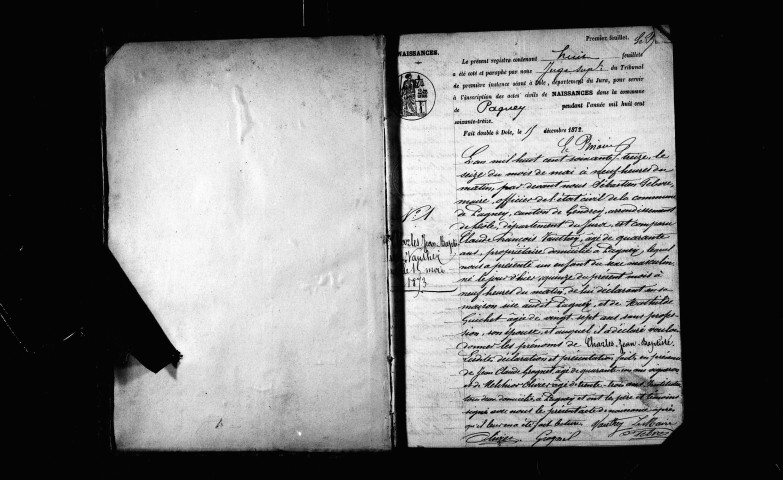 Premier feuillet.
NAISSANCES.
Le présent registre contenant huit feuillets
a été coté et paraphé par nous Juge supt du Tribunal
de première instance séant à Dole, département du Jura, pour servir
à l'inscription des actes civils de NAISSANCES dans la commune
de Pagney pendant l'année mil huit cent
soixante-treize.
Fait double à Dole, le 15 décembre 1872.
L'an mil huit cent soixante treize, le
seize du mois de mai à neuf heures du
matin, par devant nous Sébastien
maire, officier de l'état civil de la commune
de Pagney, canton de Gendrey, arrondissement
de Dole, département du Jura, est comparu
Claude François Vauthey, âgé de quarante
ans, propriétaire domicilié à Pagney, lequel
nous a présenté un enfant du sexe masculin
né le jour d'hier quinze du présent mois à
neuf heures du matin, de lui déclarant en sa
maison sise audit Pagney, et de
Guichet âgée de vingt sept ans sans profes-
sion, son épouse, et auquel il a déclaré vouloir
donner les prénoms de Charles, Jean-Baptiste.
Lesdites déclaration et présentation faites en présence
de Jean Claude âgé de quarante-un ans vigneron
et de Melchior âgé de trente-trois ans
tous deux domiciliés à Pagney et ont le père et témoins
signé avec nous le présent acte de naissance après
qu'il leur en a été fait lecture. Vauthey Le Maire
N° 1.
Charles Jean-Bapte
le 15 mai
1873